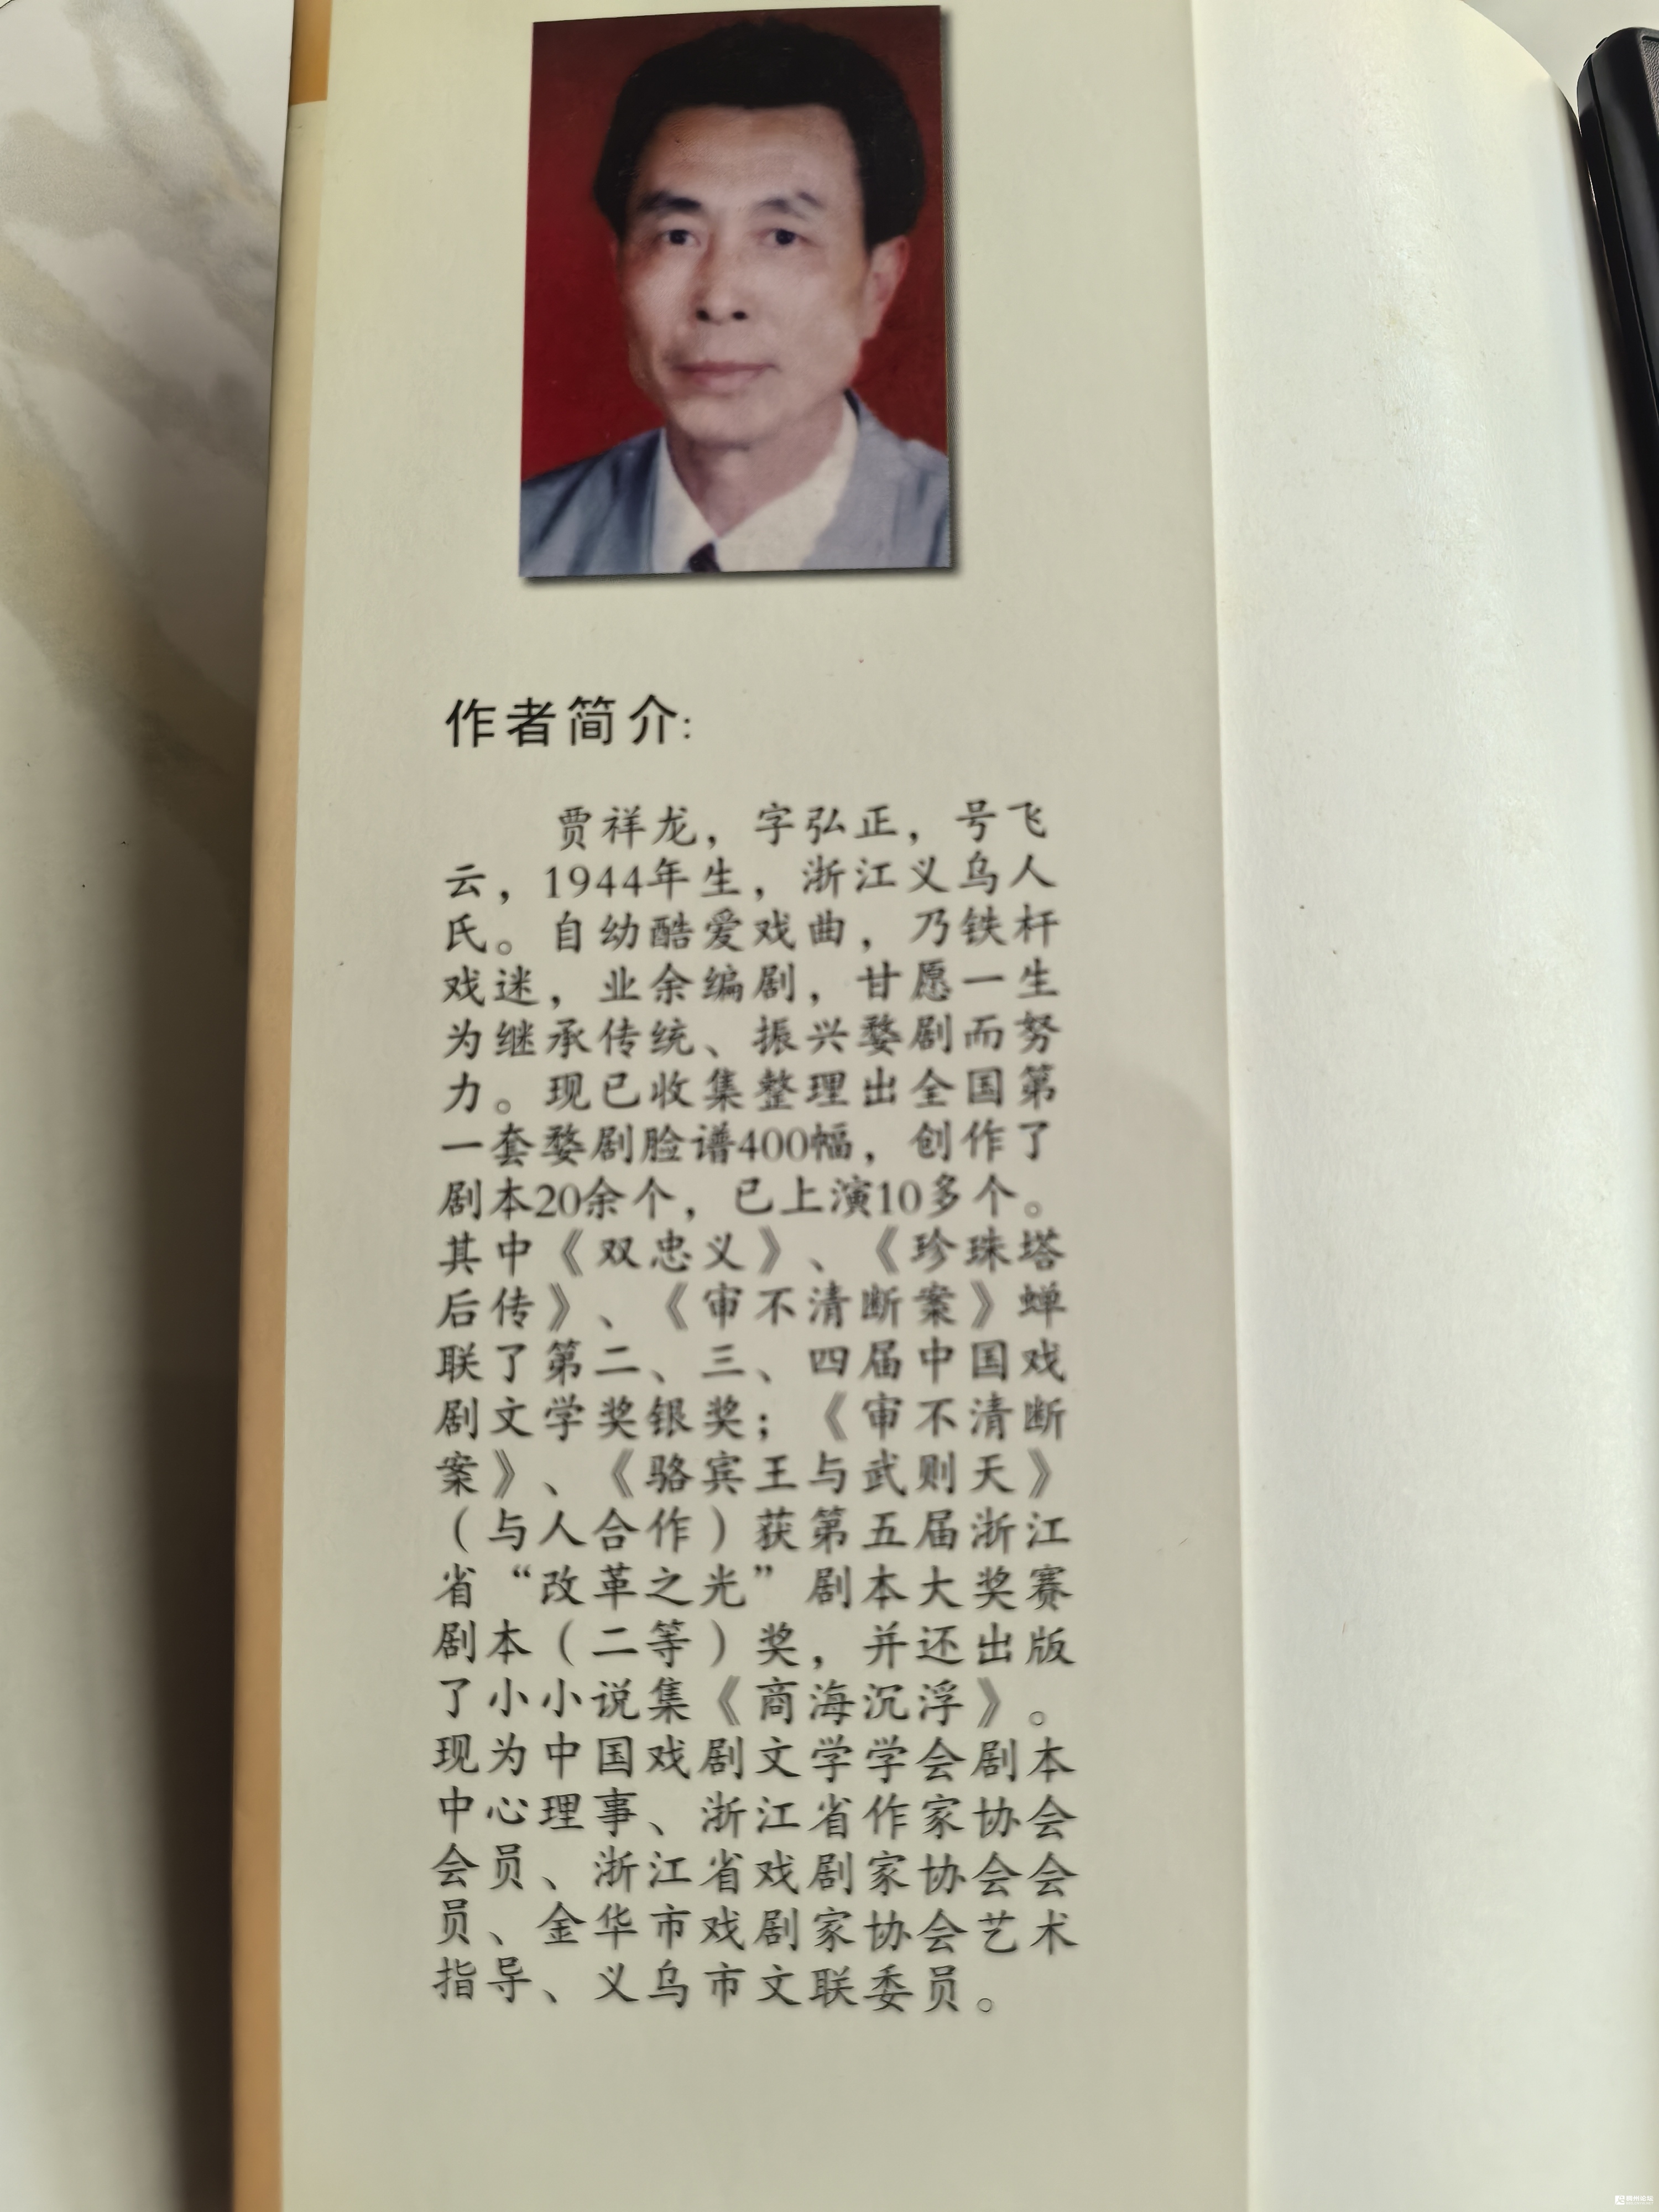 作者简介:
贾祥龙，字弘正，号飞
云，1944年生，浙江义乌人
氏。自幼酷爱戏曲，乃铁杆
戏迷，业余编剧，甘愿一生
为继承传统、振兴婺剧而努
力。现已收集整理出全国第
一套婺剧脸谱400幅，创作了
剧本20余个，已上演10多个。
其中《双忠义》、《珍珠塔
后传》、《审不清断案》蝉
联了第二、三、四届中国戏
剧文学奖银奖；《审不清断
案》、《骆宾王与武则天》
（与人合作）获第五届浙江
省“改革之光”剧本大奖赛
剧本（二等）奖，并还出版
了小小说集《商海沉浮》。
现为中国戏剧文学学会剧本
中心理事、浙江省作家协会
会员、浙江省戏剧家协会会
员、金华市戏剧家协会艺术
指导、义乌市文联委员。